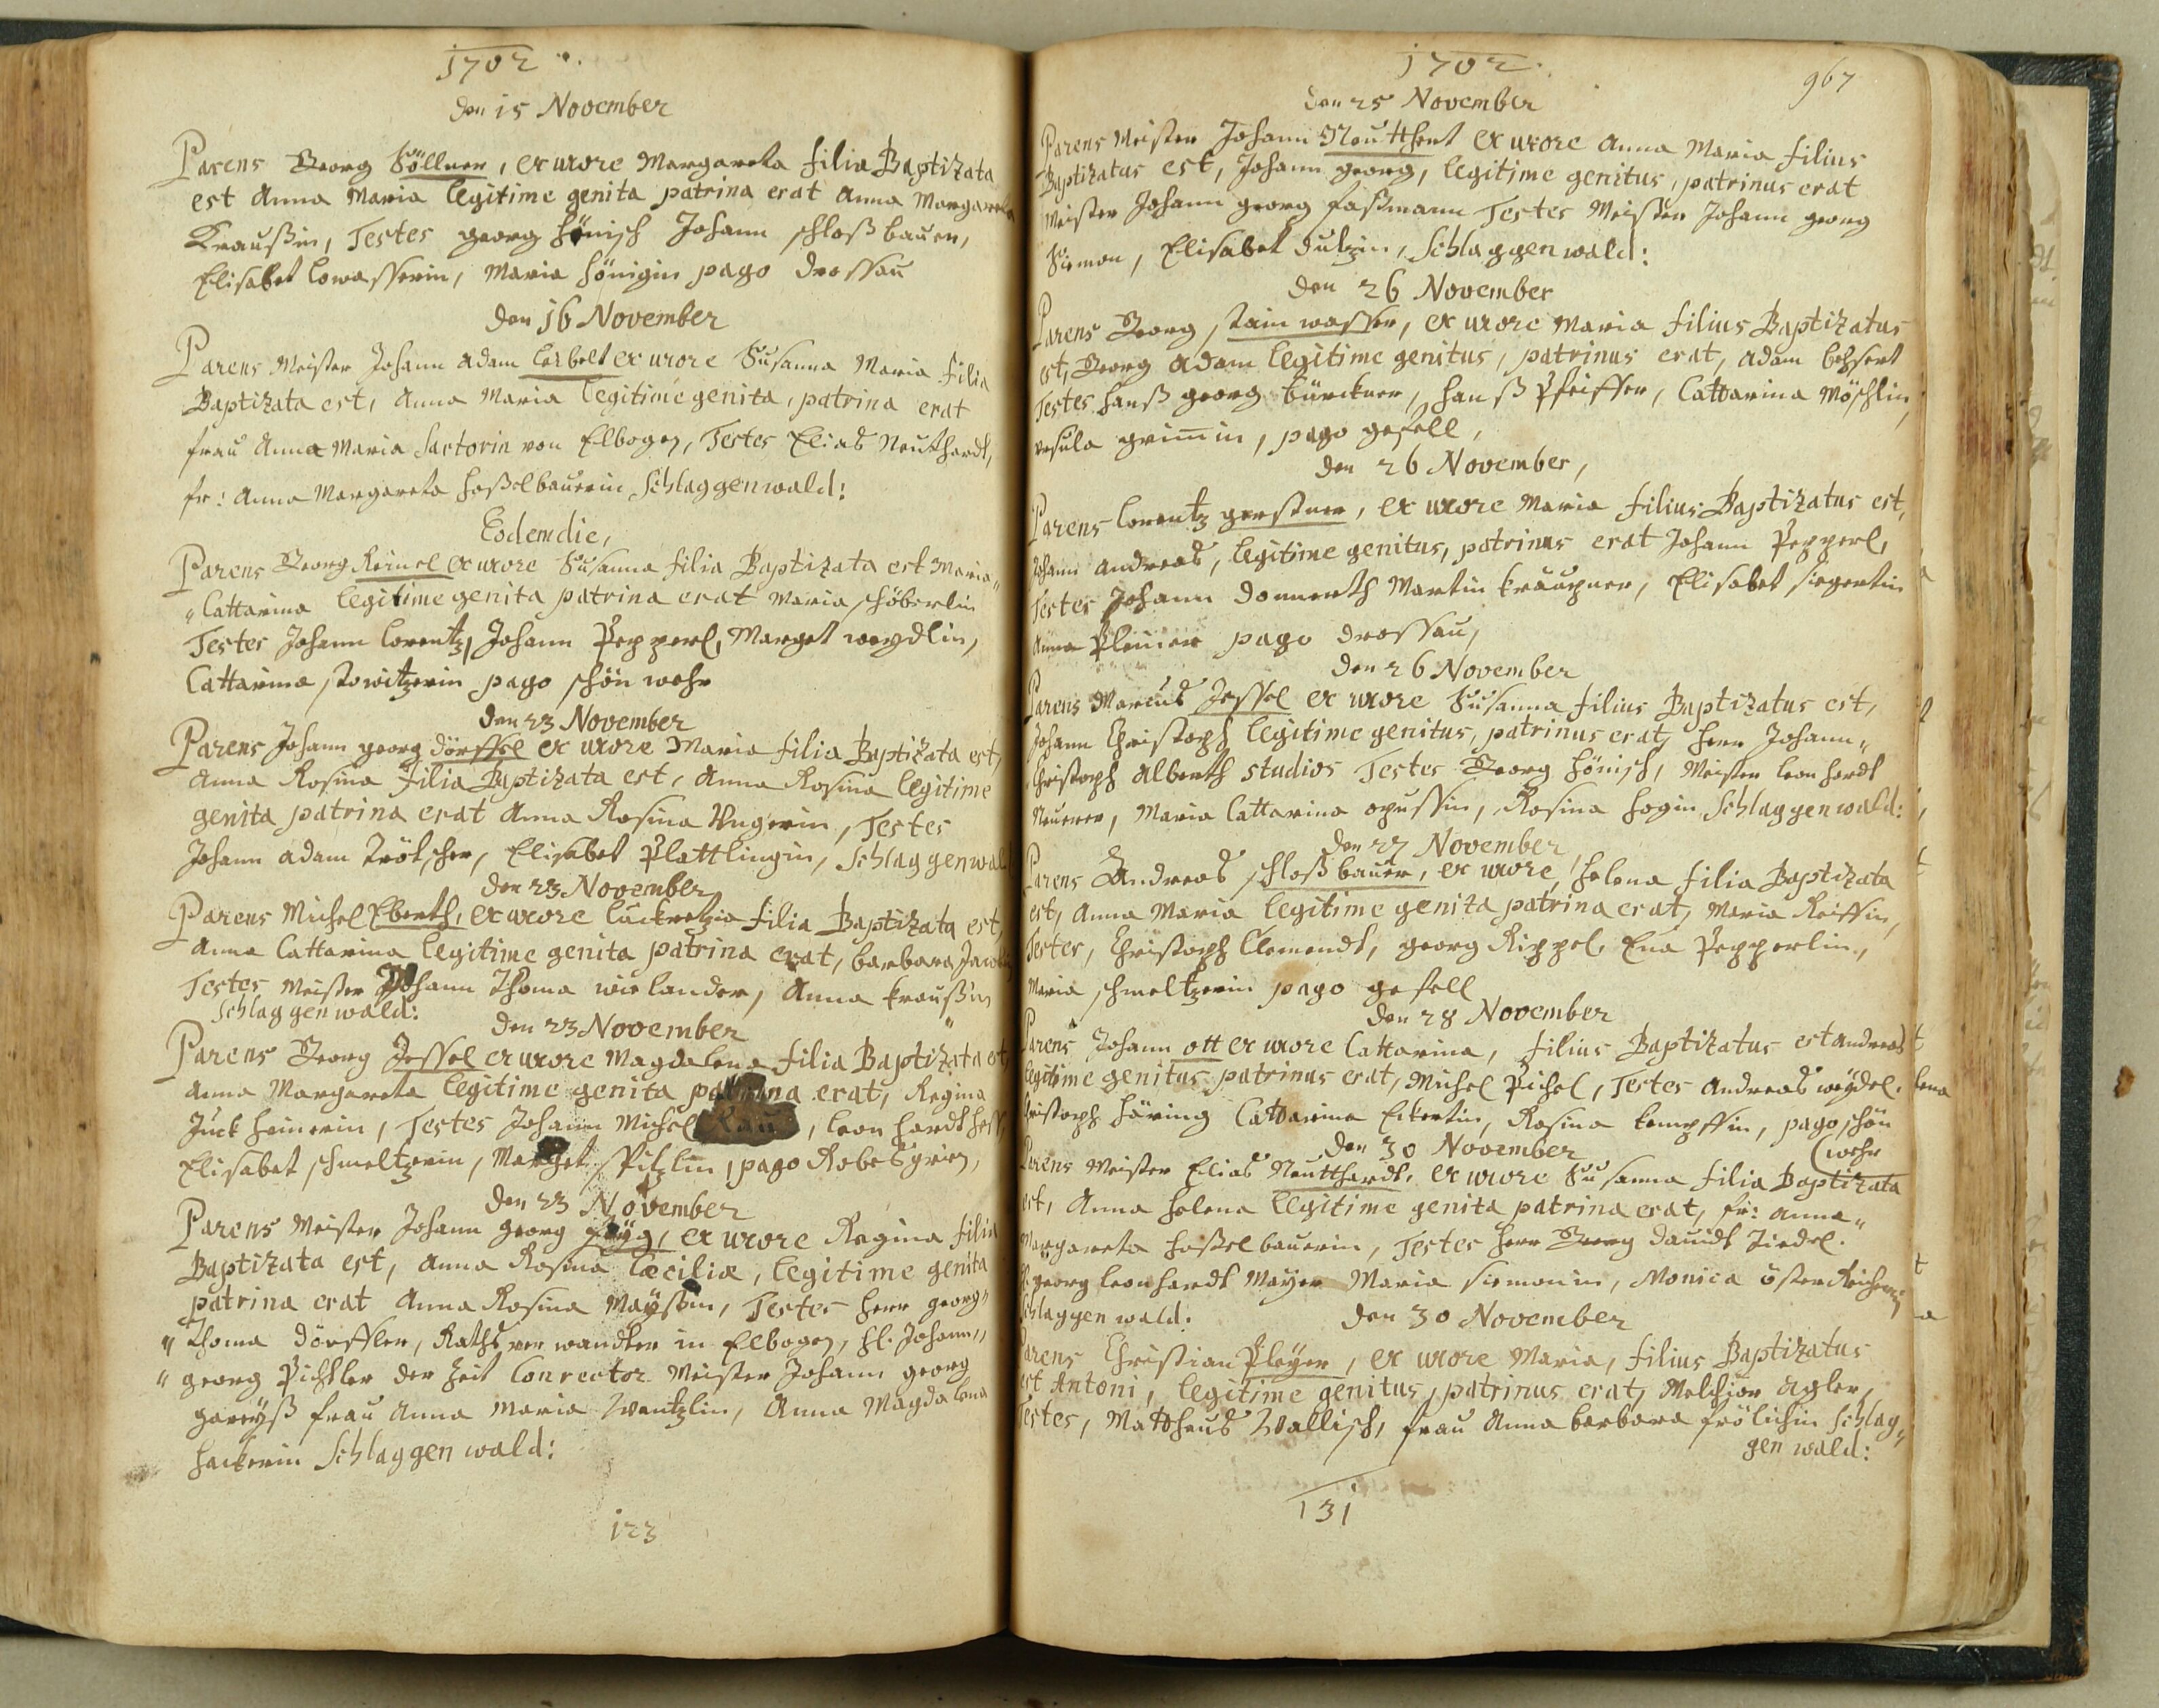 1702.
den 15 November
Parens Georg Söllner, ex uxore Margareta filia Baptizata
est Anna Maria legitime genita patrina erat Anna Margareta
Kraußin, Testes georg Hönisch Johann schloß bauer,
Elisabet lowasserin, Maria Hönigin pago drossau
den 16 November
Parens Meister Johann Adam ex uxore Susanna Maria filia
Baptizata est, Anna Maria legitime genita, patrina erat
frau Anna Maria Sartorin von Elbogen, Testes Elias Neuthardt,
fr: Anna Margareta Haßelbauerin Schlaggenwald:
Eodem die,
Parens Georg Reinel ex uxore Susanna filia Baptizata est Maria"
"Cattarina legitime genita patrina erat Maria schöberlin
Testes Johann lorentz, Johann Pepperl, Marget weydlin,
Cattarina stowitzerin pago schön wehr
den 23 November
Parens Johann georg dörffel ex uxore Maria filia Baptizata est,
Anna Rosina filia Baptizata est, Anna Rosina legitime
genita patrina erat Anna Rosina Ungerin, Testes
Johann Adam Trötscher, Elisabet Plattlingin, Schlaggenwal
den 23 November
Parens Michel Eberth, ex uxore luckretzia filia Baptizata est,
Anna Cattarina legitime genita patrina erat, barbara
Testes Meister Johann Thoma wielander, Anna kraußin
Schlaggenwald:
den 23 November
Parens Georg Jessel ex uxore Magdalena filia Baptizata est,
Anna Margareta legitime genita patrina erat, Regina
Juckheinerin, Testes Johann Michel, leonhardt
Elisabet schmeltzerin, Marget spitzlin, pago Robesgrien,
den 23 November
Parens Meister Johann georg, ex uxore Regina filia
Baptizata est, Anna Rosina Cæciliæ, legitime genita
patrina erat Anna Rosina Mayßin, Testes Herr georg"
"Thoma dörffler, Rathsverwandter in Elbogen, H. Johann"
"georg Pichler der Zeit Conrector Meister Johann georg
gareyß frau Anna Maria Wentzlin, Anna Magdalena
Hackerin Schlaggenwald:
123
1702.
967
den 25 November
Parens Meister Johann Neutthert ex uxore Anna Maria filius
Baptizatus est, Johann georg, legitime genitus, patrinus erat
Meister Johann georg faßmann Testes Meister Johann georg
Siemon, Elisabet dutzin, Schlaggenwald:
den 26 November
Parens Georg stain wasser, ex uxore Maria filius Baptizatus
est, Georg Adam legitime genitus, patrinus erat, Adam
Testes Hanß georg bürckner, Hanß Pfeiffer, Cattarina Möschlin,
ursula grimin, pago gfell,
den 26 November,
Parens lorentz gerstner, ex uxore Maria filius Baptizatus est,
Johann Andreas, legitime genitus, patrinus erat Johann Pepperl,
Testes Johann donnerth Martin kraupner, Elisabet siegertin
Anna Pleiner pago drossau,
den 26 November
Parens Marcus Jessel ex uxore Susanna filius Baptizatus est,
Johann Christoph legitime genitus, patrinus erat, Herr Johann"
Christoph Alberth studios Testes Georg Hönisch, Meister leonhardt
Neuerer, Maria Cattarina opussin, Rosina Hogin Schlaggenwald:
den 27 November
Parens Andreas schloß bauer, ex uxore, Helena filia Baptizata
est, Anna Maria legitime genita patrina erat, Maria Reissin,
Testes, Christoph Clementt, georg Rippel, Eua Pepperlin,
Maria schmeltzerin pago gefell
den 28 November
Parens Johann ott ex uxore Cattarina, filius Baptizatus est Andreas
legitime genitus patrinus erat, Michel Pichel, Testes Andreas weydel.
Christoph Häring Cattarina Eckertin, Rosina kempffin, pago schön
(wehr
den 30 November
Parens Meister Elias Neutthardt, ex uxore Susanna filia Baptizata
est, Anna Helena legitime genita patrina erat, fr: Anna"
Margareta Haßelbauerin, Testes Herr Georg Dauidt Tiedel.
H. georg leonhardt Mayer Maria siemonin, Monica
Schlaggenwald.
den 30 November
Parens Christian Pleyer, ex uxore Maria, filius Baptizatus
est Antoni, legitime genitus, patrinus erat, Melchior Agler,
Testes, Mattheus Wallisch, frau Anna barbara frölichin Schlag"
genwald:
131